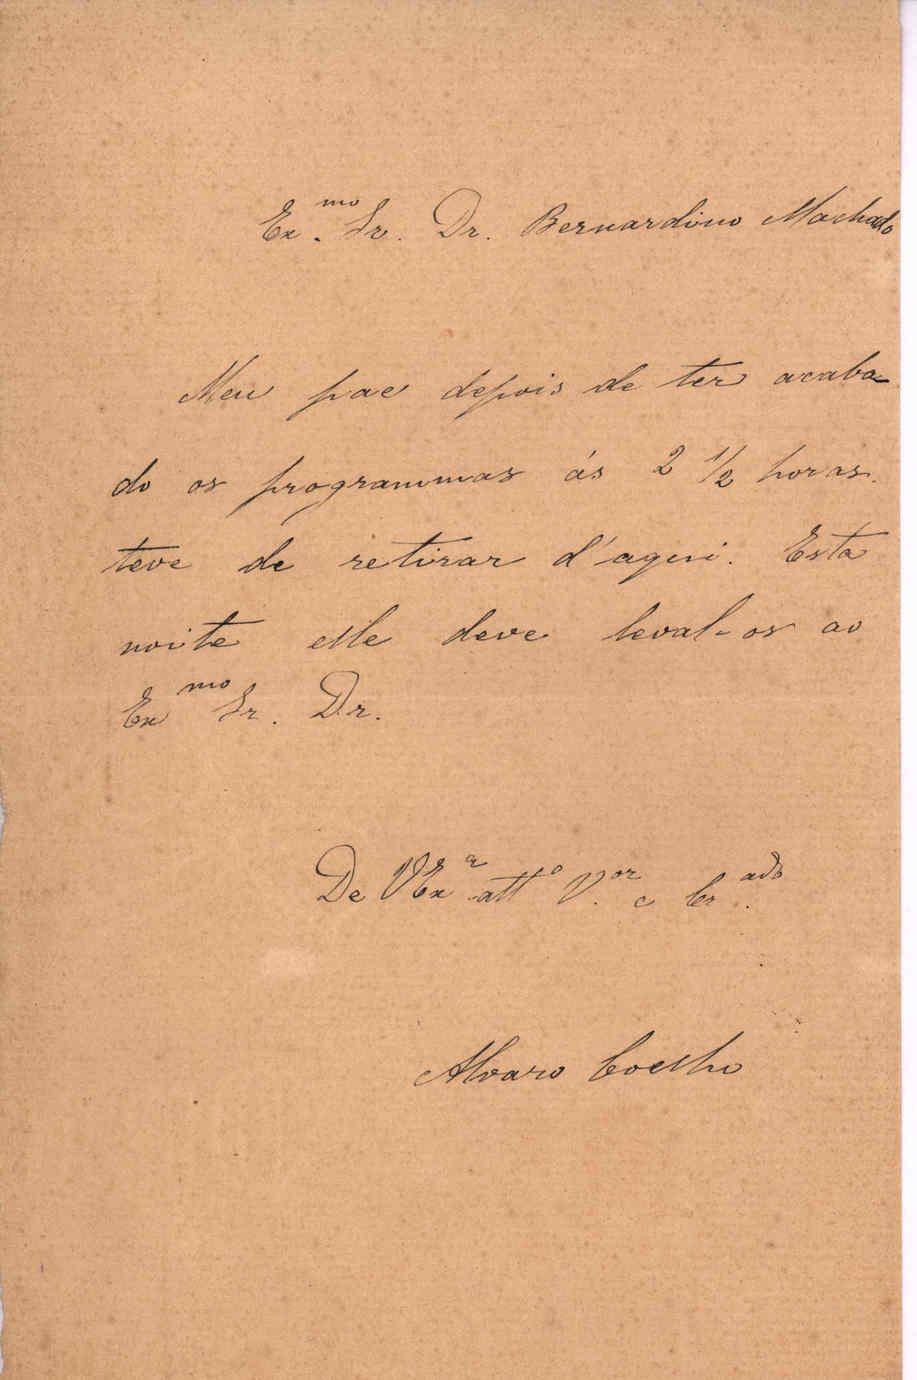 Ex.mo Sr. Dr. Bernardino Machado
Meu pae depois de ter acaba-
do os programmas ás 2 1/2 horas.
teve de retirar d'aqui. Esta
noite elle deve leval-os ao
Exmo Sr. Dr.
De VExa atto V.or e Cr.ado
Alvaro Coelho